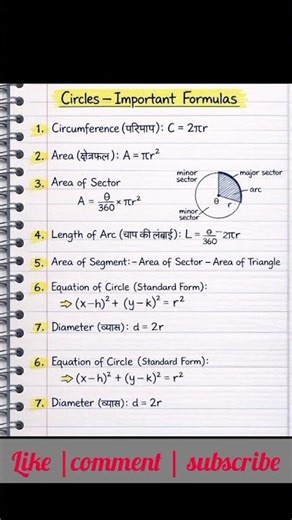 Circles – Important Formulas
1. Circumference (परिमाप): C = 2πr
2. Area (क्षेत्रफल): A = πr²
3. Area of Sector
A = θ/360 × πr²
minor sector
major sector
arc
θ
r
minor sector
4. Length of Arc (चाप की लंबाई): L = θ/360 2πr
5. Area of Segment:– Area of Sector – Area of Triangle
6. Equation of Circle (Standard Form):
⇒ (x–h)² + (y–k)² = r²
7. Diameter (व्यास): d = 2r
6. Equation of Circle (Standard Form):
⇒ (x–h)² + (y–k)² = r²
7. Diameter (व्यास): d = 2r
Like | comment | subscribe